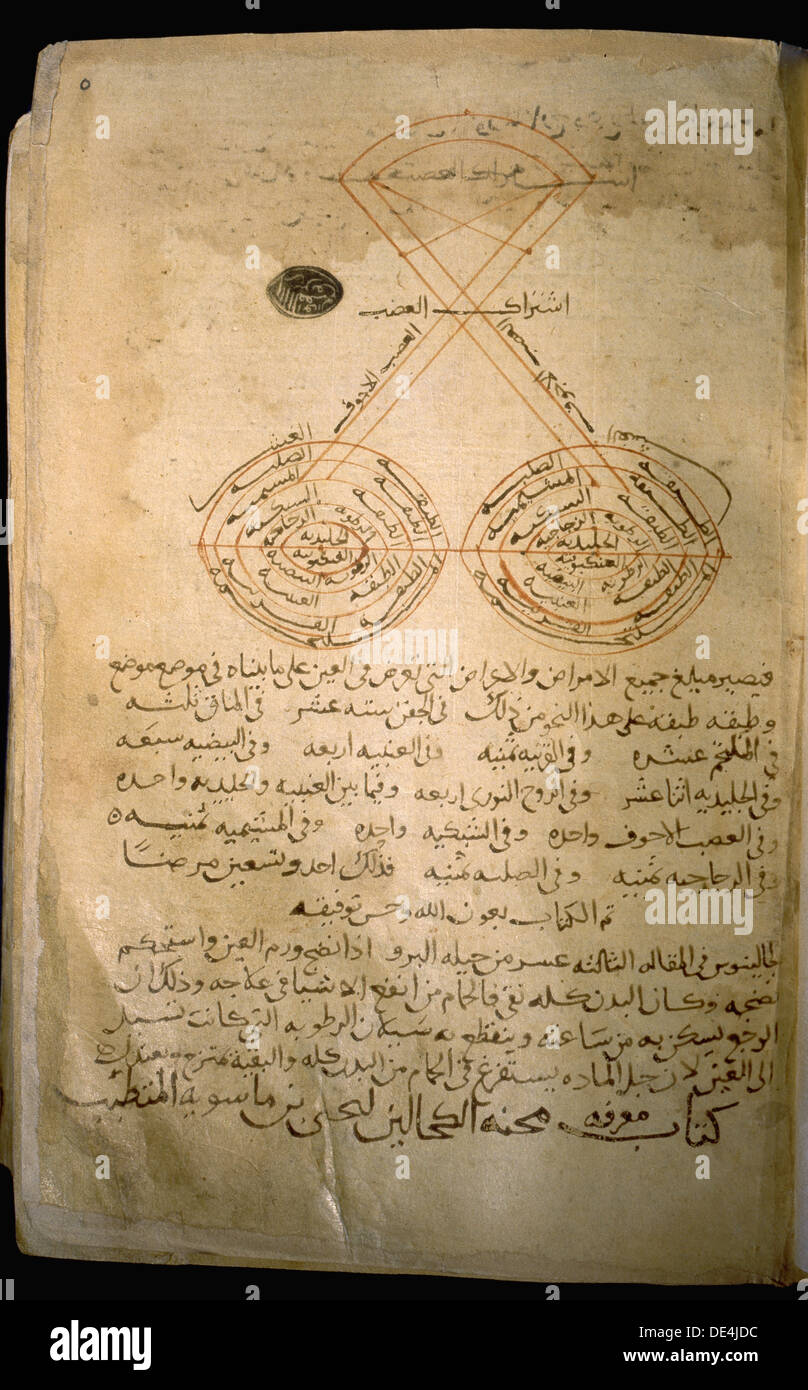 اشتراك العصب
العصب الاجوف
الطبقه الصلبه
الطبقه المشيميه
الطبقه الشبكيه
الرطوبه الزجاجيه
الجليديه
العنكبوتيه
الرطوبه البيضيه
الطبقه العنبيه
الطبقه القرنيه
الملتحم
الصلبه
المشيميه
الشبكيه
الرطوبه الزجاجيه
الجليديه
العنكبوتيه
الرطوبه البيضيه
الطبقه العنبيه
الطبقه القرنيه
الملتحم
فيصير مبلغ جميع الامراض والاعراض التى تعرض فى العين على ما بيناه فى موضع موضع
وطبقه طبقه على هذا النحو من ذلك فى الجفن سته عشر فى الماق ثلثه
فى الملتحم عشره وفى القرنيه ثمنيه وفى العنبيه اربعه وفى البيضيه سبعه
وفى الجليديه اثنا عشر وفى الروح النورى اربعه وفيما بين العنبيه والجليديه واحده
وفى العصب الاجوف واحده وفى الشبكيه واحده وفى المشيميه ثمنيه
وفى الزجاجيه ثمنيه وفى الصلبه ثمنيه فذلك احد وتسعين مرضا
تم الكتاب بعون الله وحسن توفيقه
لجالينوس فى المقاله الثالثه عشر من حيله البرو اذا نضج ورم العين واستحكم
نضجه وكان البدن كله نقى فالحمام من انفع الاشيا فى علاجه وذلك ان
الوجع يسكن به من ساعته وينقطع به سيلان الرطوبه التى كانت تسيل
الى العين لان جل الماده يستفرغ فى الحمام من البدن كله والبقيه تمتزج
كتاب معرفه محنه الكحالين ليحيى بن ماسويه المتطبب
alamy
Image ID: DE4JDC
www.alamy.com